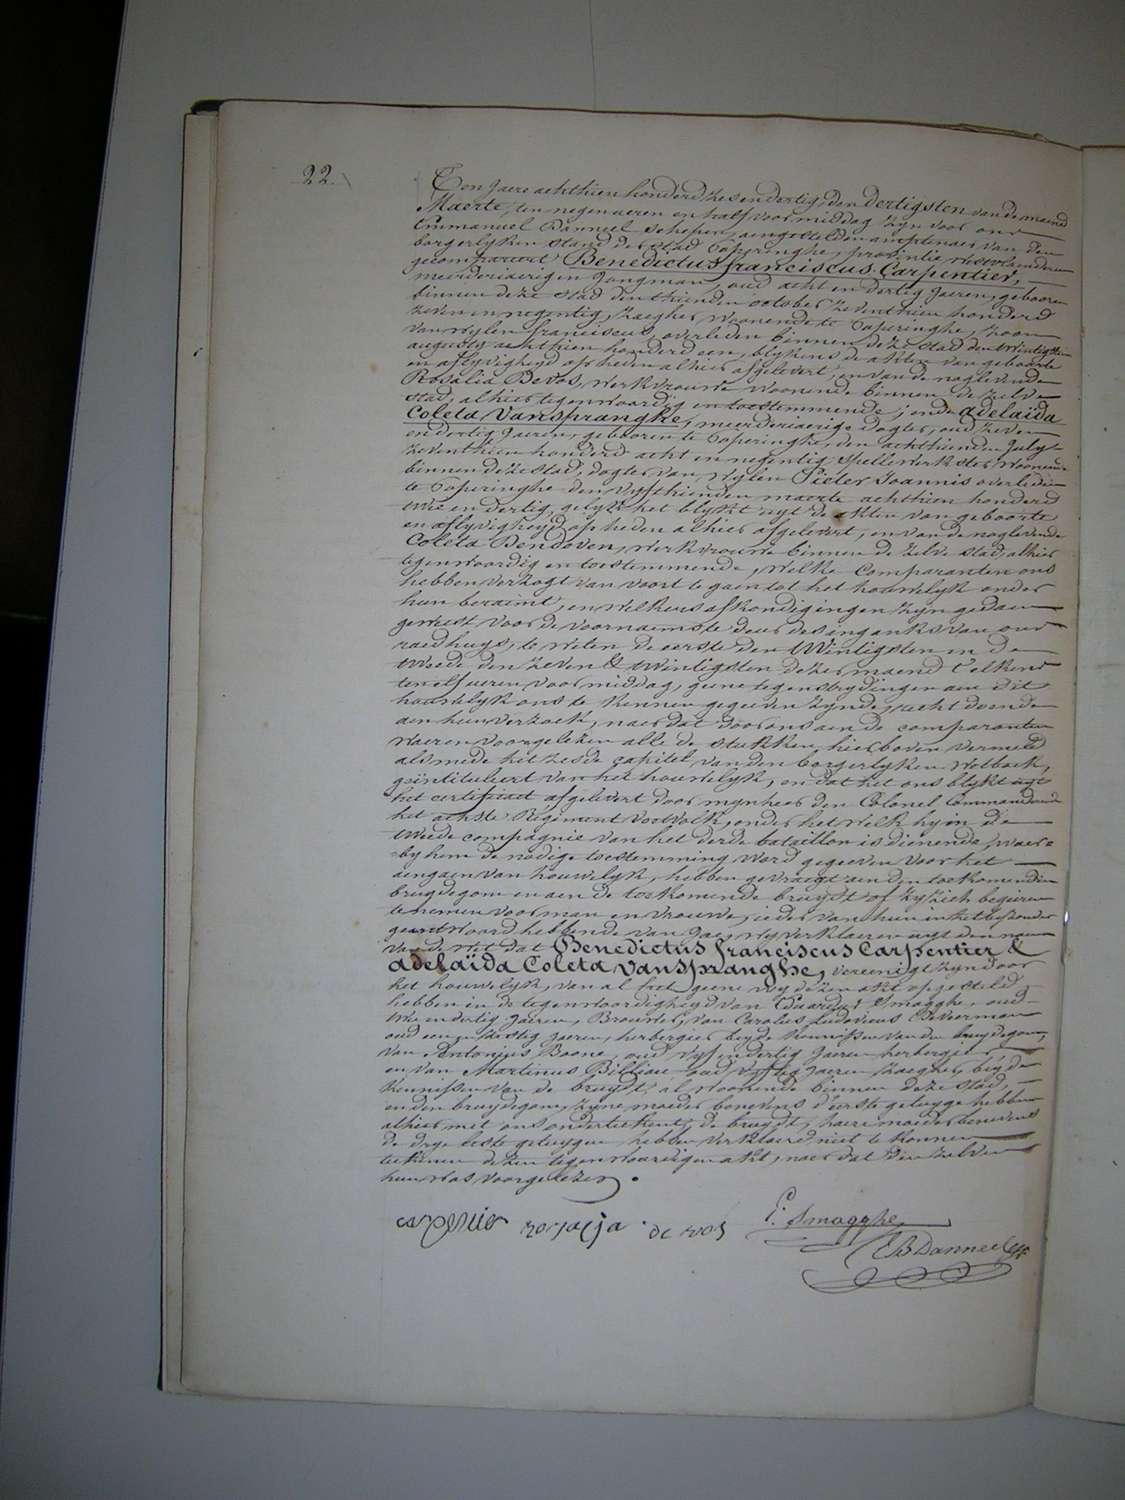 22.
Ten Jaere achthien honderd zes en dertig, den dertigsten van de maend
Maerte, ten negen ueren en half voor middag zyn voor ons
Emmanuel Danneel schepen, aengestelden amptenaer van den
borgerlyken stand der stad Poperinghe, provintie Westvlaenderen
gecompareert Benedictus franciscus Carpentier,
meerderjaerigen Jongman, oud acht en dertig Jaeren, gebooren
binnen deze stad den thienden october zeventhien honderd
zeven en negentig, zaegher, woonende te Poperinghe, zoon
van wylen franciscus, overleden binnen deze stad den twintigsten
augusty achthien honderd een, blykens de akten van geboorte
en aflyvigheyd op heden alhier afgelevert, en van de naglevende
Rosalia Devos, werkvrouwe woonende binnen de zelve
stad, alhier tegenwoordig en toestemmende; ende adelaïda
Coleta Vansprangke, meerderjaerige dogter, oud zeven
en dertig Jaeren, gebooren te Poperinghe, den achthienden July
zeventhien honderd acht en negentig, spellewerkster, woonende
binnen deze stad, dogter van wylen Pieter Joannis overleden
te Poperinghe den vyfthienden maerte achthien honderd
twee en dertig, gelyk het blykt uyt de akten van geboorte
en aflyvigheyd op heden alhier afgelevert, en van de naglevende
Coleta Dendoven, werkvrouwe binnen de zelve stad, alhier
tegenwoordig en toestemmende, welke Comparanten ons
hebben verzogt van voort te gaen tot het houwelyk onder
hun beraemt, en welkers afkondigingen zyn gedaen
geweest voor de voornaemste deur des inganks van ons
raedhuys, te weten de eerste den twintigsten en de
tweede den zeven & twintigsten dezer maend telkens
ten elf ueren voor middag, geene tegenstrydingen aen dit
houwelyk ons te kennen gegeven zynde, recht doende
aen hun verzoek, naer dat door ons aen de comparanten
waeren voorgelezen alle de stukken hier boven vermeld
alsmede het zesde capitel van den borgerlyken wetboek,
geïntituleert van het houwelyk, en dat het ons blykt uyt
het certificaet afgelevert door mynheer den Colonel Commandant
het achste Regiment voetvolk, onder het welk hy in de
tweede compagnie van het derde bataillon is dienende, waer
by hem de nodige toestemming word gegeeven voor het
aengaen van houwelyk, hebben gevraegt aen den toekomenden
bruydegom en aen de toekomende bruydt of zy zich begeeren
te nemen voor man en vrouwe, ieder van hun in het byzonder
geantwoord hebbende van Jae, wy verklaeren uyt den naem
van de wet dat Benedictus franciscus Carpentier &
adelaïda Coleta Vanspranghe, vereenigt zyn door
het houwelyk, van al het geene wy dezen akt opgesteld
hebben in de tegenwoordigheyd van Eduardus Smagghe, oud
twee en dertig Jaeren, Brouwer, van Carolus Ludovicus Deveerman
oud een en sestig Jaeren, herbergier beyde kennissen van den bruydegom,
van Antonius Boone, oud vyf en dertig Jaeren herbergier
en van Martinus Billiau oud vyftig Jaeren zaegher, beyde
kennissen van de bruydt, al woonende binnen deze stad,
en den bruydegom, zyne moeder benevens d'eerste getuyge hebben
alhier met ons ondertekent, de bruydt, haere moeder benevens
de drye leste getuygen hebben verklaerd niet te konnen
teekenen dezen tegenwoordigen akt, naer dat den zelven
hun was voorgelezen.
carpentier rosalja de vos E. Smagghe
E B Danneel